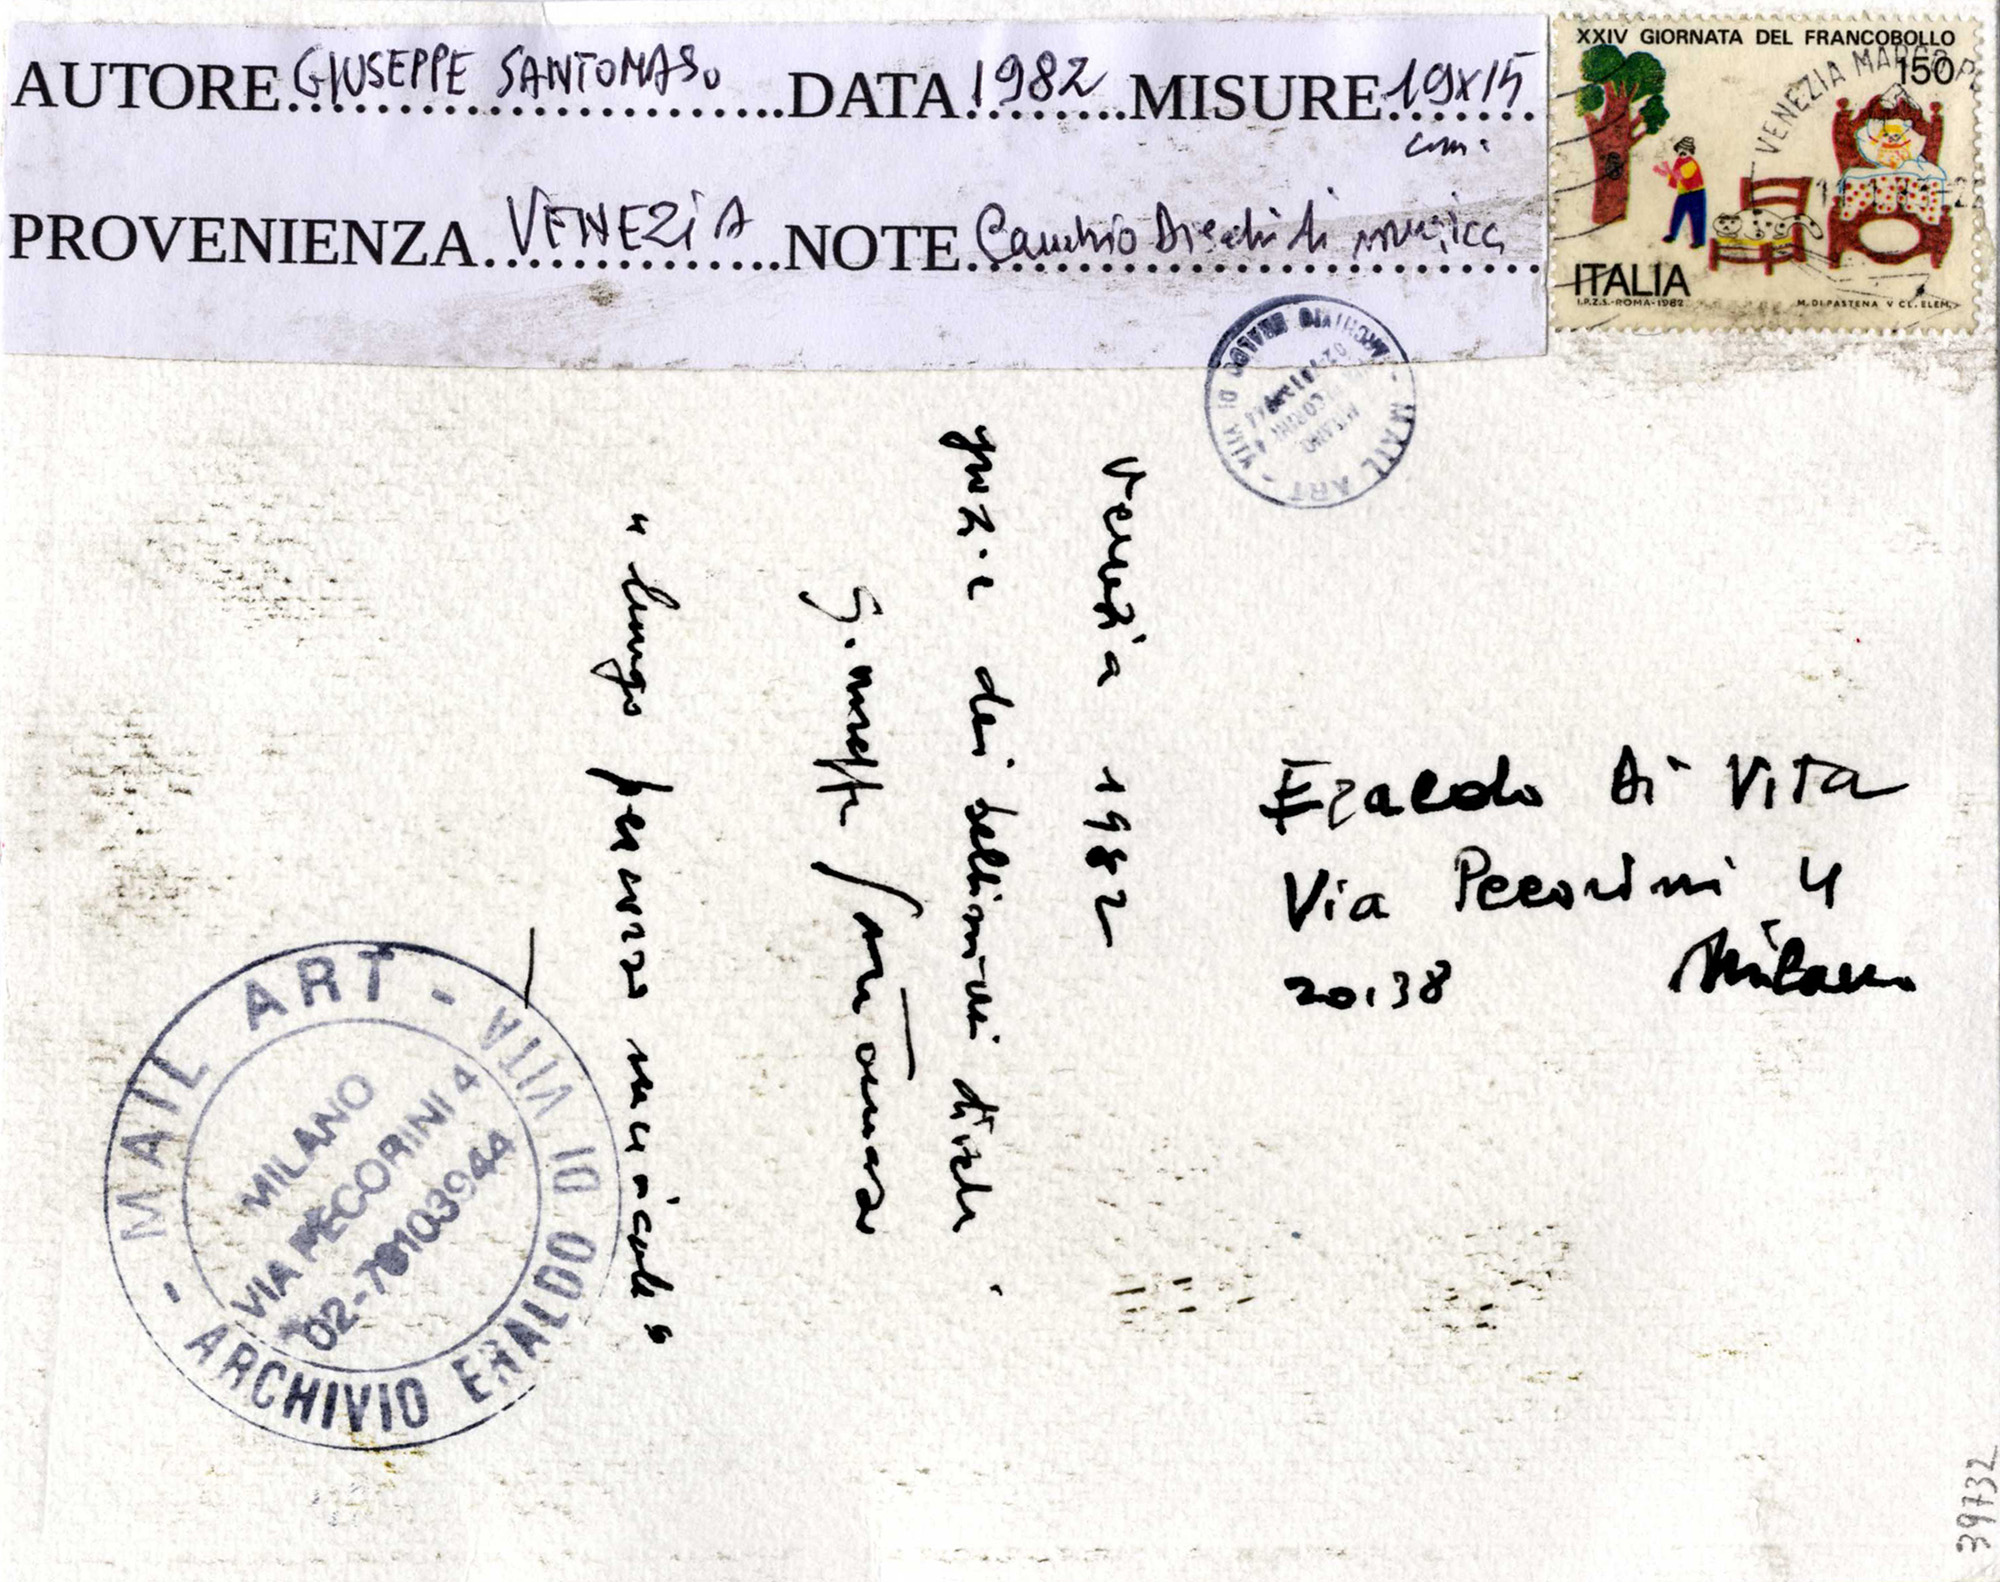 AUTORE GIUSEPPE SANTOMASO DATA 1982 MISURE 19x15 cm.
PROVENIENZA VENEZIA NOTE Cambio Dischi di musica
XXIV GIORNATA DEL FRANCOBOLLO
150
VENEZIA MAR
ITALIA
I.P.Z.S.-ROMA-1982 M. DI PASTENA V CL. ELEM.
MAIL ART - ARCHIVIO ERALDO DI VITA -
Venezia 1982
grazie dei bellissimi dischi.
G. Santomaso
"lungo percorso musicale"
Eraldo Di Vita
Via Pecorini 4
20138 Milano
MAIL ART - VITA DI ERALDO ARCHIVIO -
MILANO
VIA PECORINI 4
02-70103944
39732